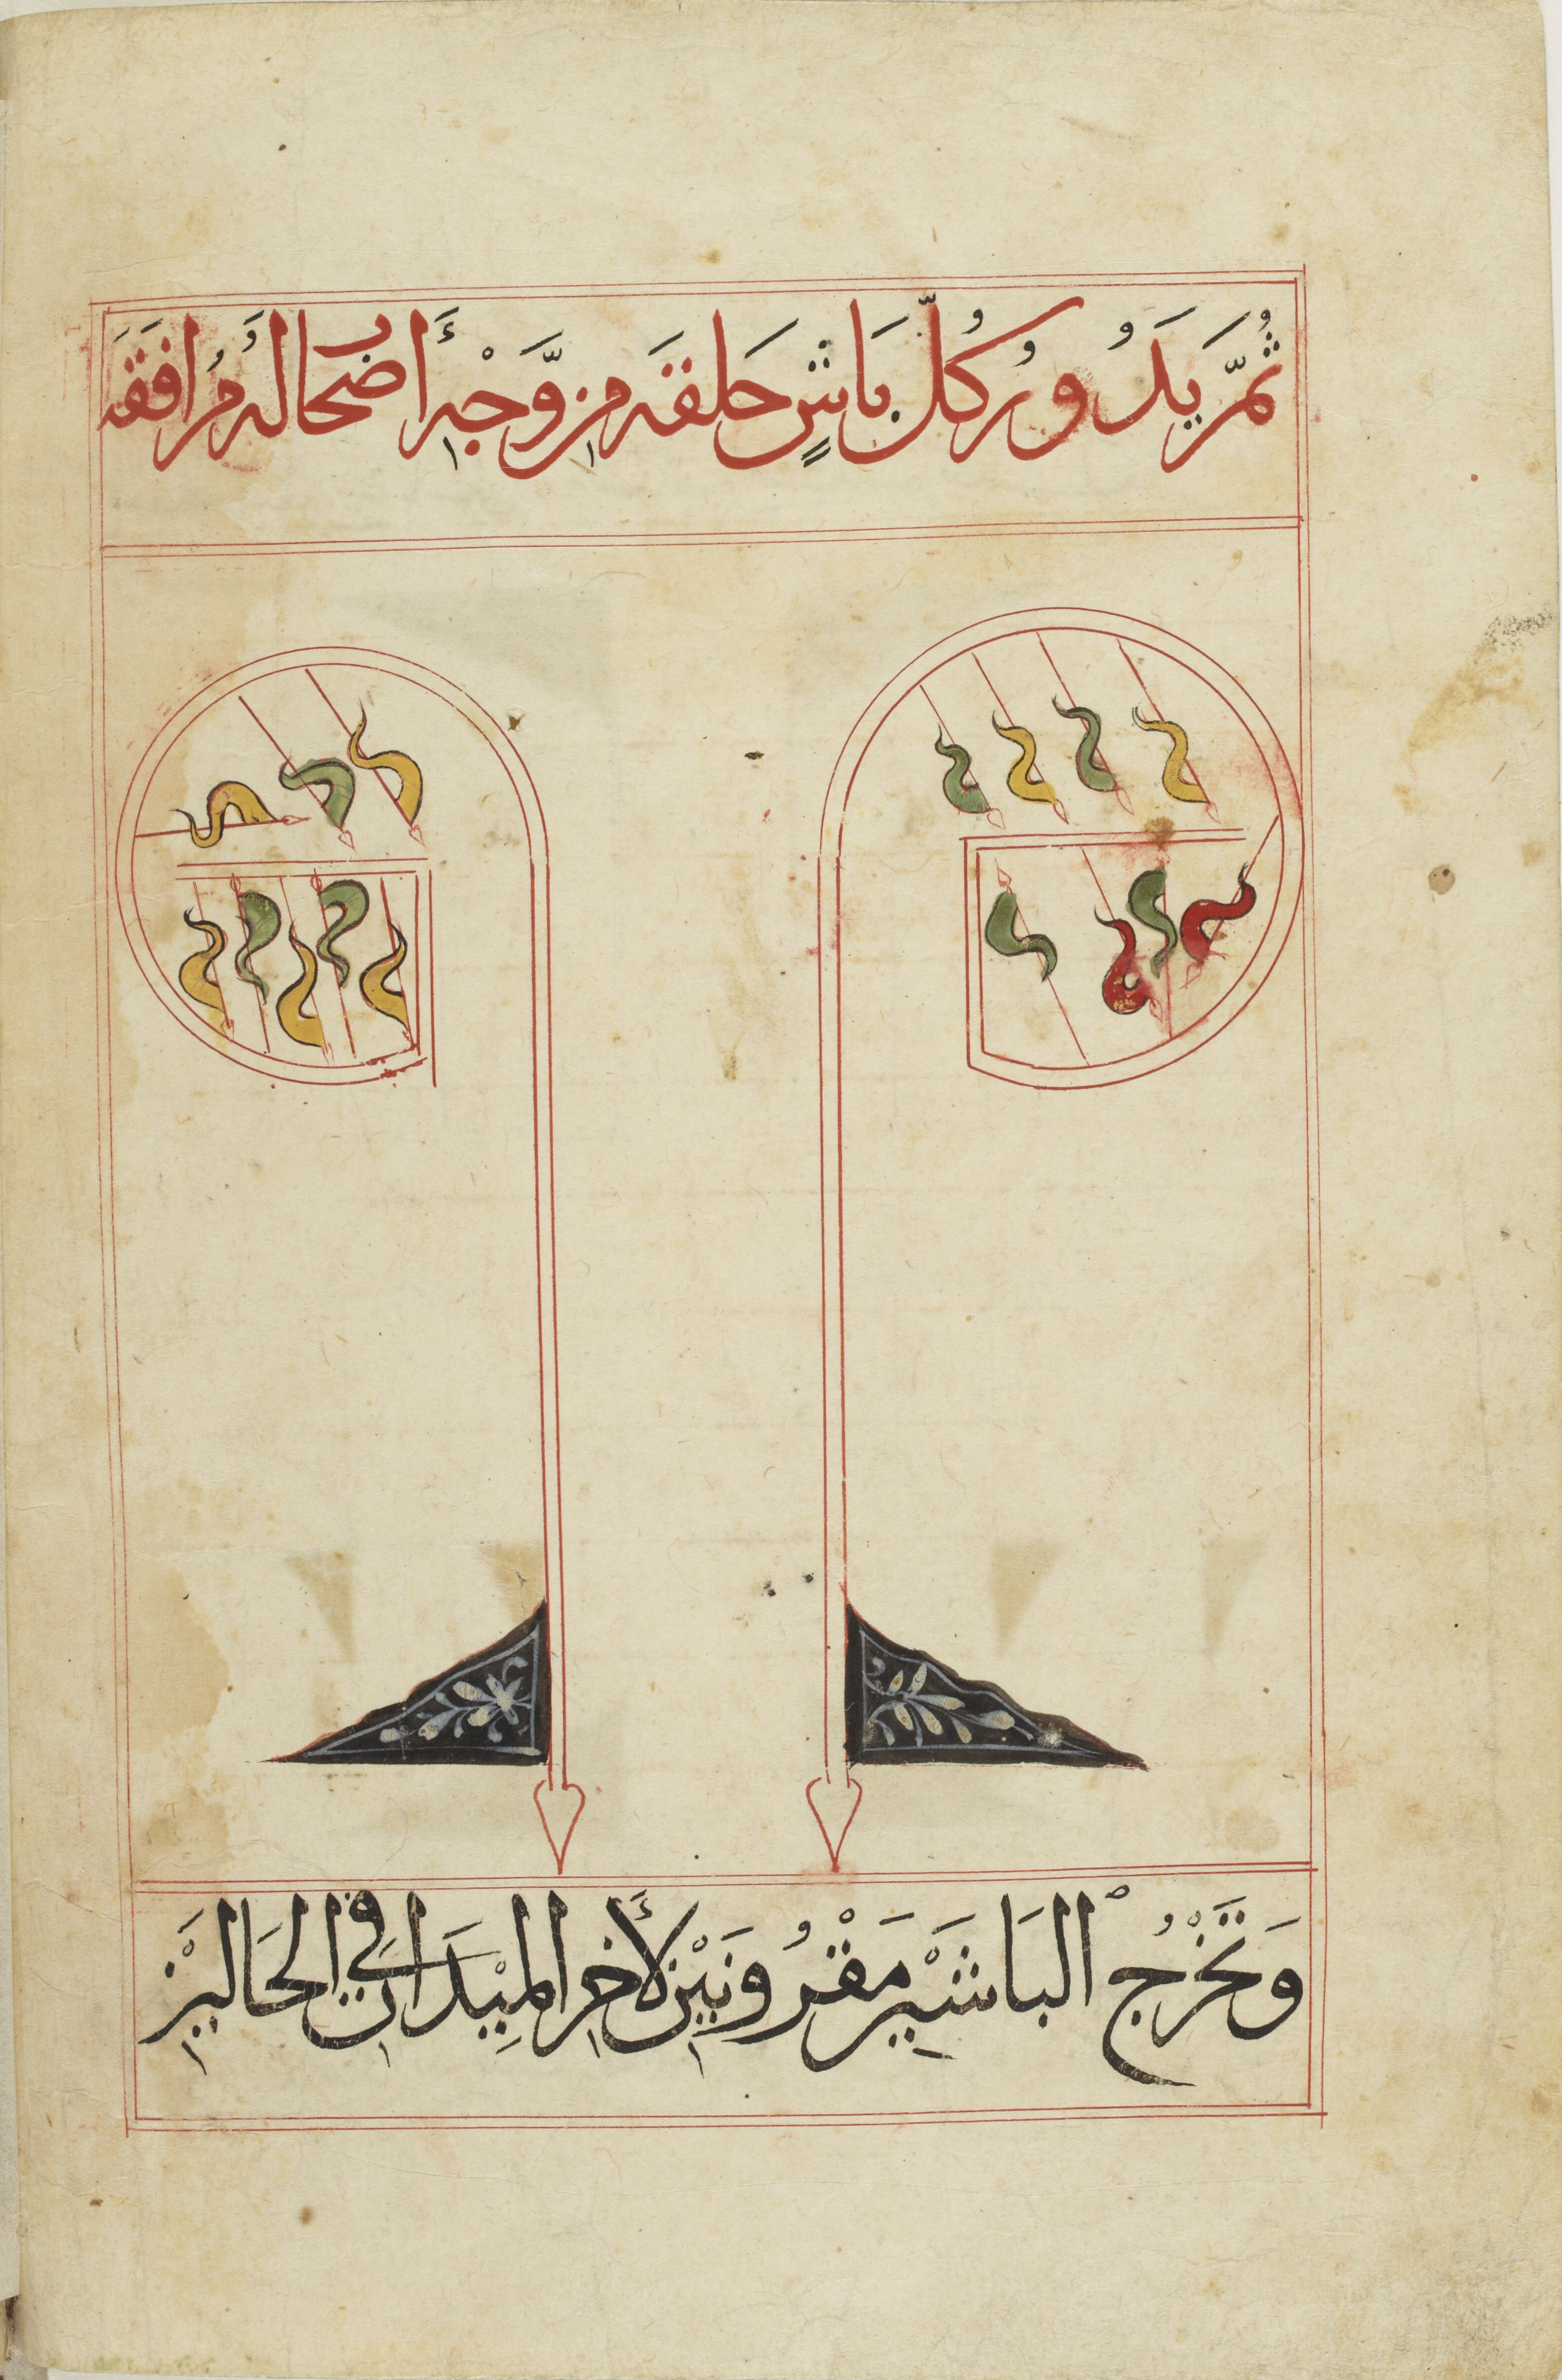 ثُمَّ يَدُورُ كُلّ بَاشٍ حَلقَه مِن وَجْهِ أَصحَابِ لَهُ مُرَافَقَه
وَتَخْرُجُ البَاشَيْن مَقْرُونَيْنِ لأَخِرِ المِيْدَانِ فِي الحَالَيْنِ